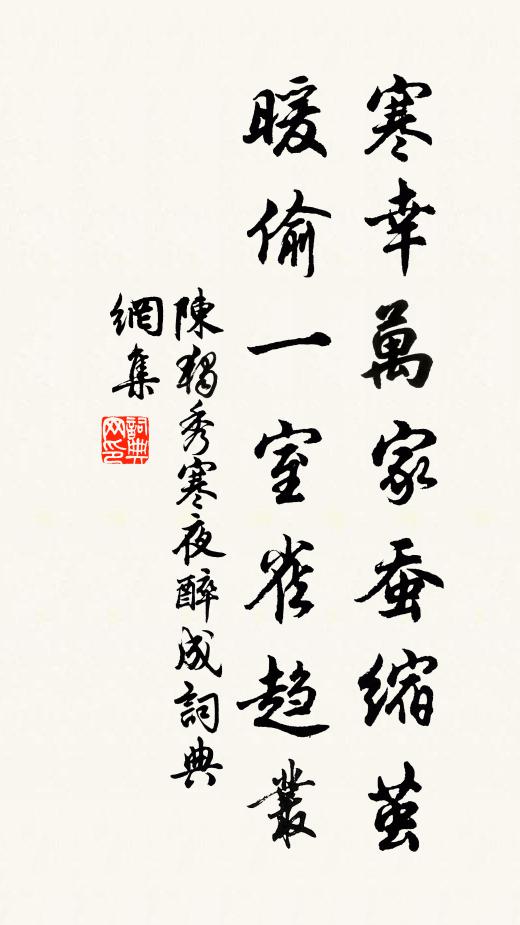 寒幸萬家蚕縮茧
暖偷一室雀趋叢
陳獨秀寒夜醉成詞典
網集
詞典
网印